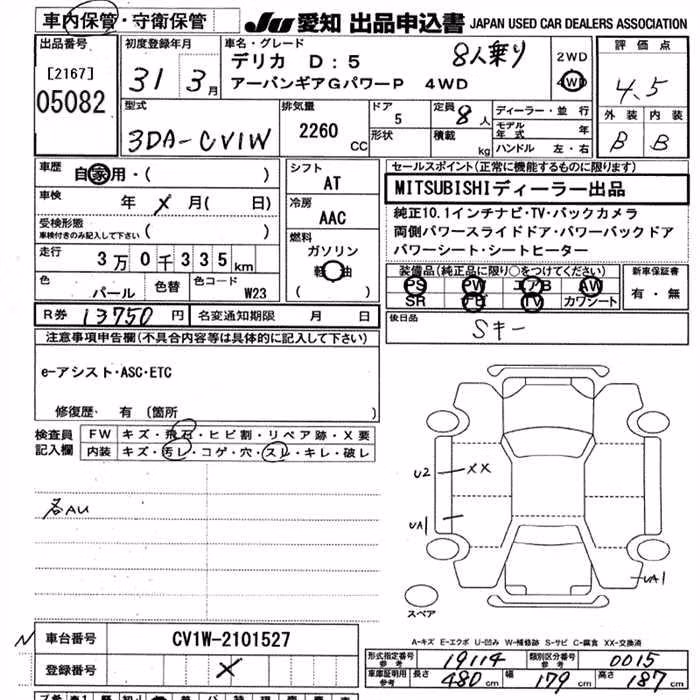 車内保管・守衛保管
JU 愛知 出品申込書 JAPAN USED CAR DEALERS ASSOCIATION
出品番号
[2167]
05082
初度登録年月
31 3月
車名・グレード
デリカ D:5 8人乗り
アーバンギアGパワーP 4WD
2WD
4WD
評価点
4.5
外装 内装
B B
型式
3DA-CV1W
排気量
2260 CC
ドア
5
形状
定員
8人
積載
kg
ディーラー・並行
モデル年式 年
ハンドル 左・右
車歴
自家用・( )
車検
年 メ 月( 日)
受検形態
車検付きのみ記入して下さい ( )
走行
3万0千335km
色
パール
色替
色コード
W23
シフト
AT
冷房
AAC
燃料
ガソリン
軽油
( )
セールスポイント(正常に機能するものに限ります)
MITSUBISHIディーラー出品
純正10.1インチナビ・TV・バックカメラ
両側パワースライドドア・パワーバックドア
パワーシート・シートヒーター
装備品(純正品に限り○をつけてください)
PS PW エアB AW
SR ナビ TV カワシート
新車保証書
有・無
R券 13750円
名変通知期限 月 日
後日品
Sキー
注意事項申告欄(不具合内容等は具体的に記入して下さい)
e-アシスト・ASC・ETC
修復歴・ 有 (箇所 )
検査員
記入欄
FW キズ・飛石・ヒビ割・リペア跡・X要
内装 キズ・汚レ・コゲ・穴・スレ・キレ・破レ
各AU
U2
XX
UA1
UA1
スペア
A-キズ E-エクボ U-凹み W-補修跡 S-サビ C-腐食 XX-交換済
N
車台番号 CV1W-2101527
登録番号 X
形式指定番号 参考 19114
類別区分番号 参考 0015
車庫証明用 参考 長さ 480cm 幅 179cm 高さ 187cm